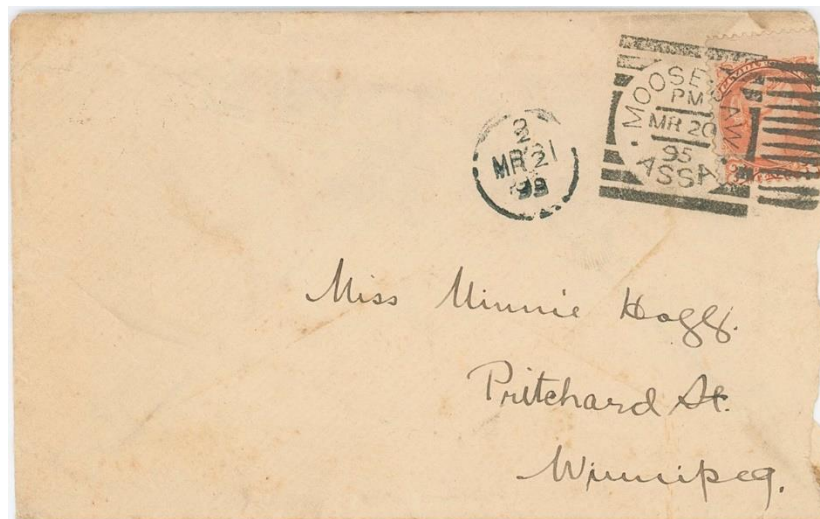 MOOSE JAW
PM
MR 20
95
ASSA
2
MR 21
Miss Minnie Hogg.
Pritchard St.
Winnipeg.